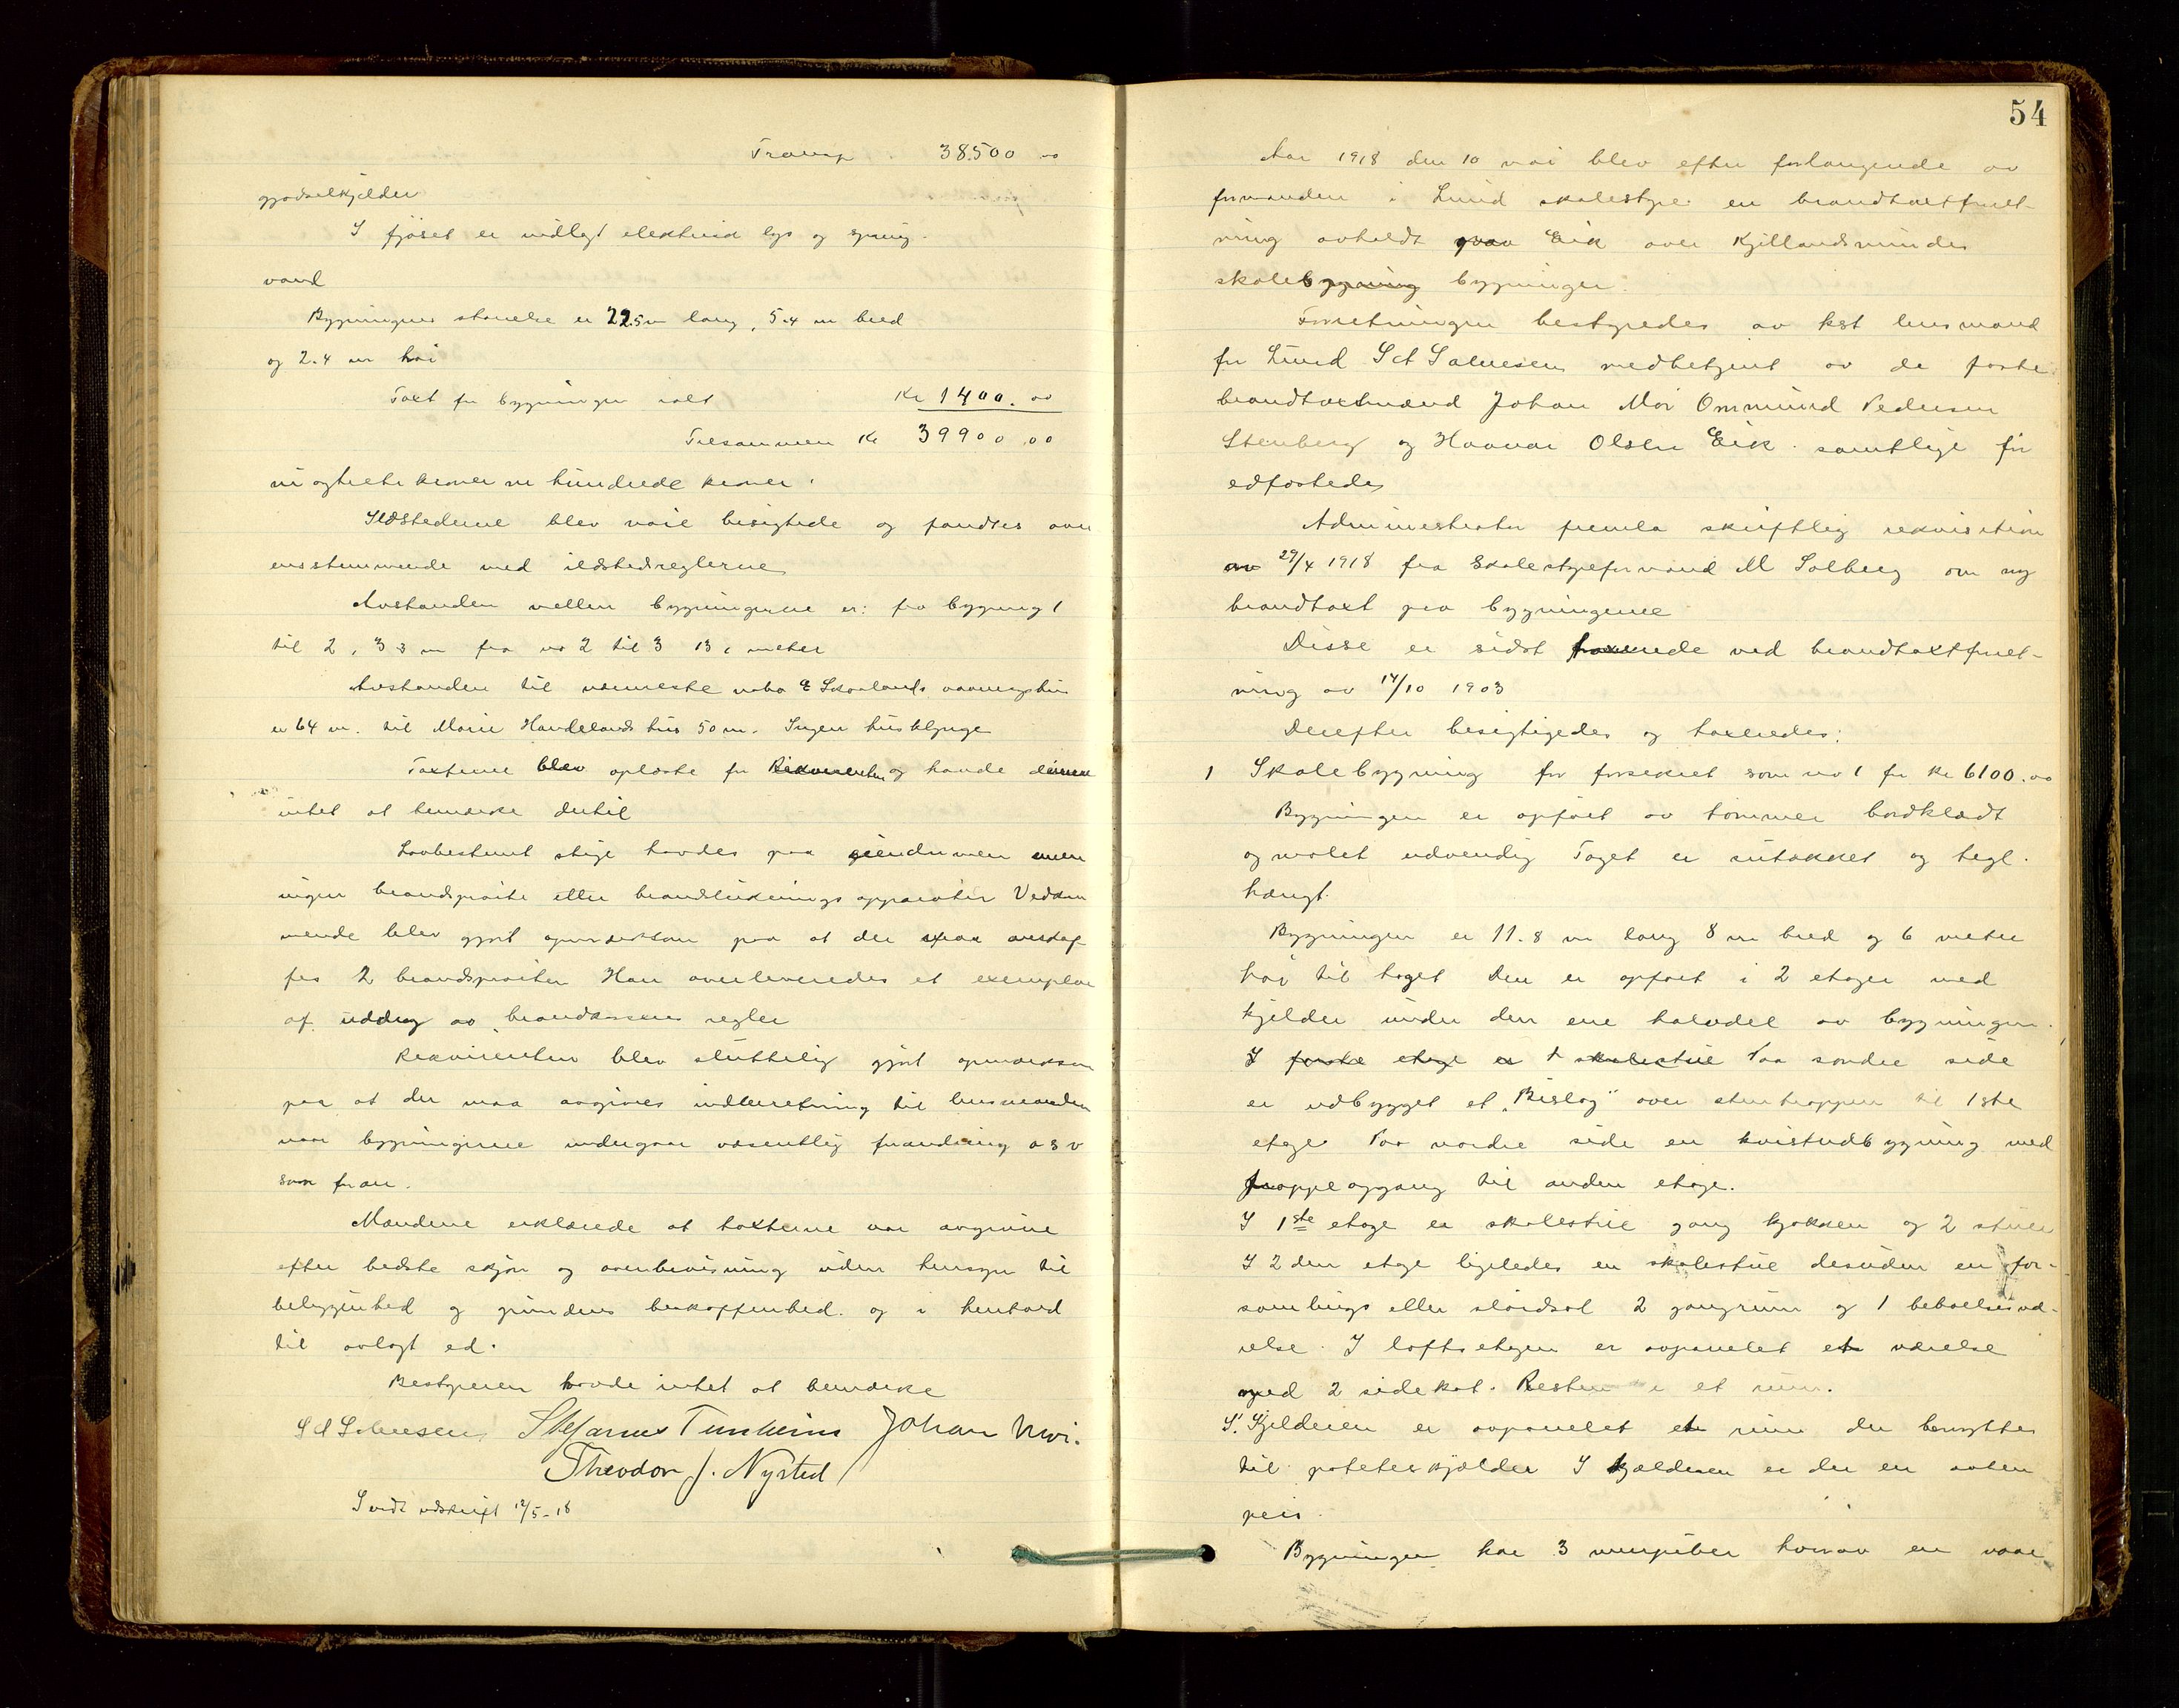 Transp 38500 00
gjødselkjelder
I fjøset er indlagt elektrisk lys og spring-
vand
Bygningens størrelse er 22.5 m lang, 5.4 m bred
og 2.4 m høi
Taxt for bygningen ialt Kr 1400.00
Tilsammen Kr 39900.00
ni og tretti kroner ni hundrede kroner.
Ildstederne blev nøie besigtede og fandtes over
ensstemmende med ildstedsreglerne
Avstanden mellem bygningerne er: fra bygning 1
til 2, 3 m fra no 2 til 3 13 meter
Avstanden til nærmeste nabo E Skaalands vaaningshus
er 64 m. til Marie Handelands hus 50 m. Ingen husklynge
Taxterne blev oplæste for Rekvirenten og havde denne
intet at bemærke dertil
Lovbestemt stige havdes paa eiendommen men
ingen brandsprøite eller brandsluknings apparater Vedkom
mende blev gjort opmerksom paa at der maa anskaf
fes 2 brandsprøiter Han overleveredes et exemplar
af uddrag av brandkassens regler
Rekvirenten blev sluttelig gjort opmerksom
paa at der maa avgives indberetning til lensmanden
naar bygningerne undergaar væsentlig forandring o s v
som foran.
Mændene erklærede at taxterne var avgivne
efter bedste skjøn og overbevisning uden hensyn til
beliggenhed og grundens beskaffenhed og i henhold
til avlagt ed.
Bestyreren havde intet at bemærke
S d Salvesen Stefanus Tunheim Johan Moi.
Theodor J. Nysted
Svidt udskrift 12/5-18
54
Aar 1918 den 10 mai blev efter forlangende av
formanden i Lund skolestyre en brandtaxtforret-
ning avholdt paa Eik over Kjellandsmindes
skolebygning bygninger.
Forretningen bestyredes av kst lensmand
for Lund S d Salvesen medbetjent av de faste
brandtaxtmænd Johan Moi Ommund Pedersen
Stenberg og Haavar Olsen Eik samtlige før
edfæstedes
Administrator fremla skriftlig rekvisition
av 29/4 1918 fra Skolestyreformand M Solberg om ny
brandtaxt paa bygningerne
Disse er sidst taxerede ved brandtaxtforret-
ning av 14/10 1903
Derefter besigtigedes og taxeredes:
1 Skolebygning før forsikret som no 1 for Kr 6100.00
Bygningen er opført av tømmer bordklædt
og malet udvendig Taget er sutakket og tegl.
hængt.
Bygningen er 11.8 m lang 8 m bred og 6 meter
høi til taget Den er opført i 2 etager med
kjelder under den ene halvdel av bygningen.
I første etage er 1 skolestue Paa søndre side
er udbygget et "Bislag" over stentrappen til 1ste
etage Paa nordre side en kvistudbygning med
trappeopgang til anden etage.
I 1ste etage er skolestue gang kjøkken og 2 stuer
I 2den etage ligeledes en skolestue desuden en for-
samlings eller sløidsal 2 gangrum og 1 beboelsesvæ-
relse. I loftsetagen er avpanelet et værelse
med 2 sidekot. Resten er et rum.
I Kjelderen er avpanelet et rum der benyttes
til potetes kjælder I kjælderen er der en aaben
peis
Bygningen har 3 murpiber hvorav en var